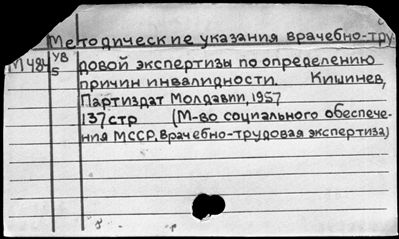 Методические указания врачебно-тру
М484 УВ довой экспертизы по определению
5 причин инвалидности. Кишинев,
Партиздат Молдавии, 1957
137 стр (М-во социального обеспече-
ния МССР, Врачебно-трудовая экспертиза)